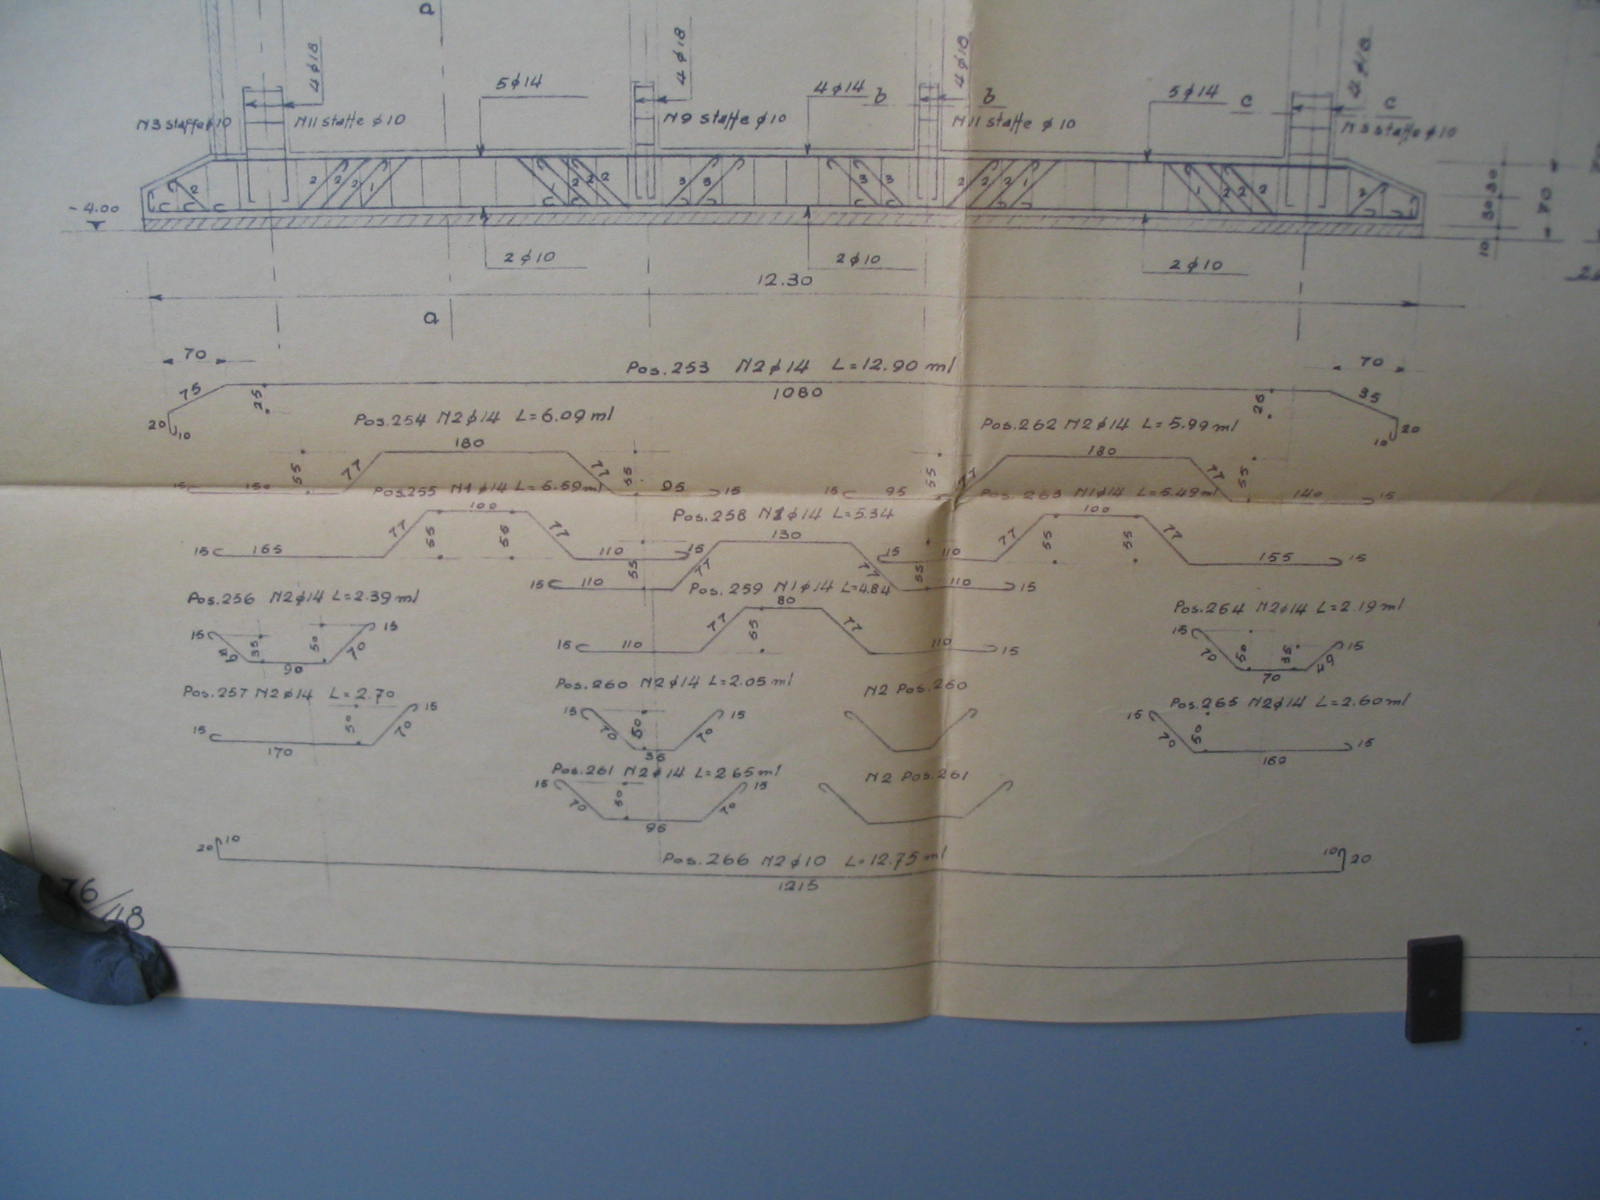 4ϕ18 4ϕ18 4ϕ18 4ϕ18
5ϕ14 4ϕ14 b b 5ϕ14 c c
N3 staffe ϕ10 N11 staffe ϕ10 N9 staffe ϕ10 N11 staffe ϕ10 staffe ϕ10
2 2 2 2 1 1 2 2 2 3 3 3 3 2 2 2 1 1 2 2 2 2
-4.00
30 30 10 70
2ϕ10 2ϕ10 2ϕ10
12.30
a
70 Pos.253 N2ϕ14 L=12.90 ml 70
75 25 1080 25 35
20 10 10 20
Pos.254 N2ϕ14 L=6.09 ml Pos.262 N2ϕ14 L=5.99 ml
180 180
55 77 77 55 55 77 77 55
15 150 95 15 15 95 140 15
Pos.255 N1ϕ14 L=6.59 ml Pos.263 N1ϕ14 L=5.49 ml
100 100
15 165 77 55 55 77 110 15 15 110 77 55 55 77 155 15
Pos.258 N1ϕ14 L=5.34
130
15 110 55 77 77 55 110 15
Pos.256 N2ϕ14 L=2.39 ml Pos.259 N1ϕ14 L=4.84 Pos.264 N2ϕ14 L=2.19 ml
80
15 35 50 70 15 15 110 77 55 77 110 15 15 70 50 35 15
90 70
Pos.257 N2ϕ14 L=2.70 Pos.260 N2ϕ14 L=2.05 ml N2 Pos.260 Pos.265 N2ϕ14 L=2.60 ml
15 170 50 70 15 15 70 50 70 15 15 70 50 160 15
35
Pos.261 N2ϕ14 L=2.65 ml N2 Pos.261
15 70 50 70 15
95
20 10 Pos.266 N2ϕ10 L=12.75 ml 10 20
1215
76/48